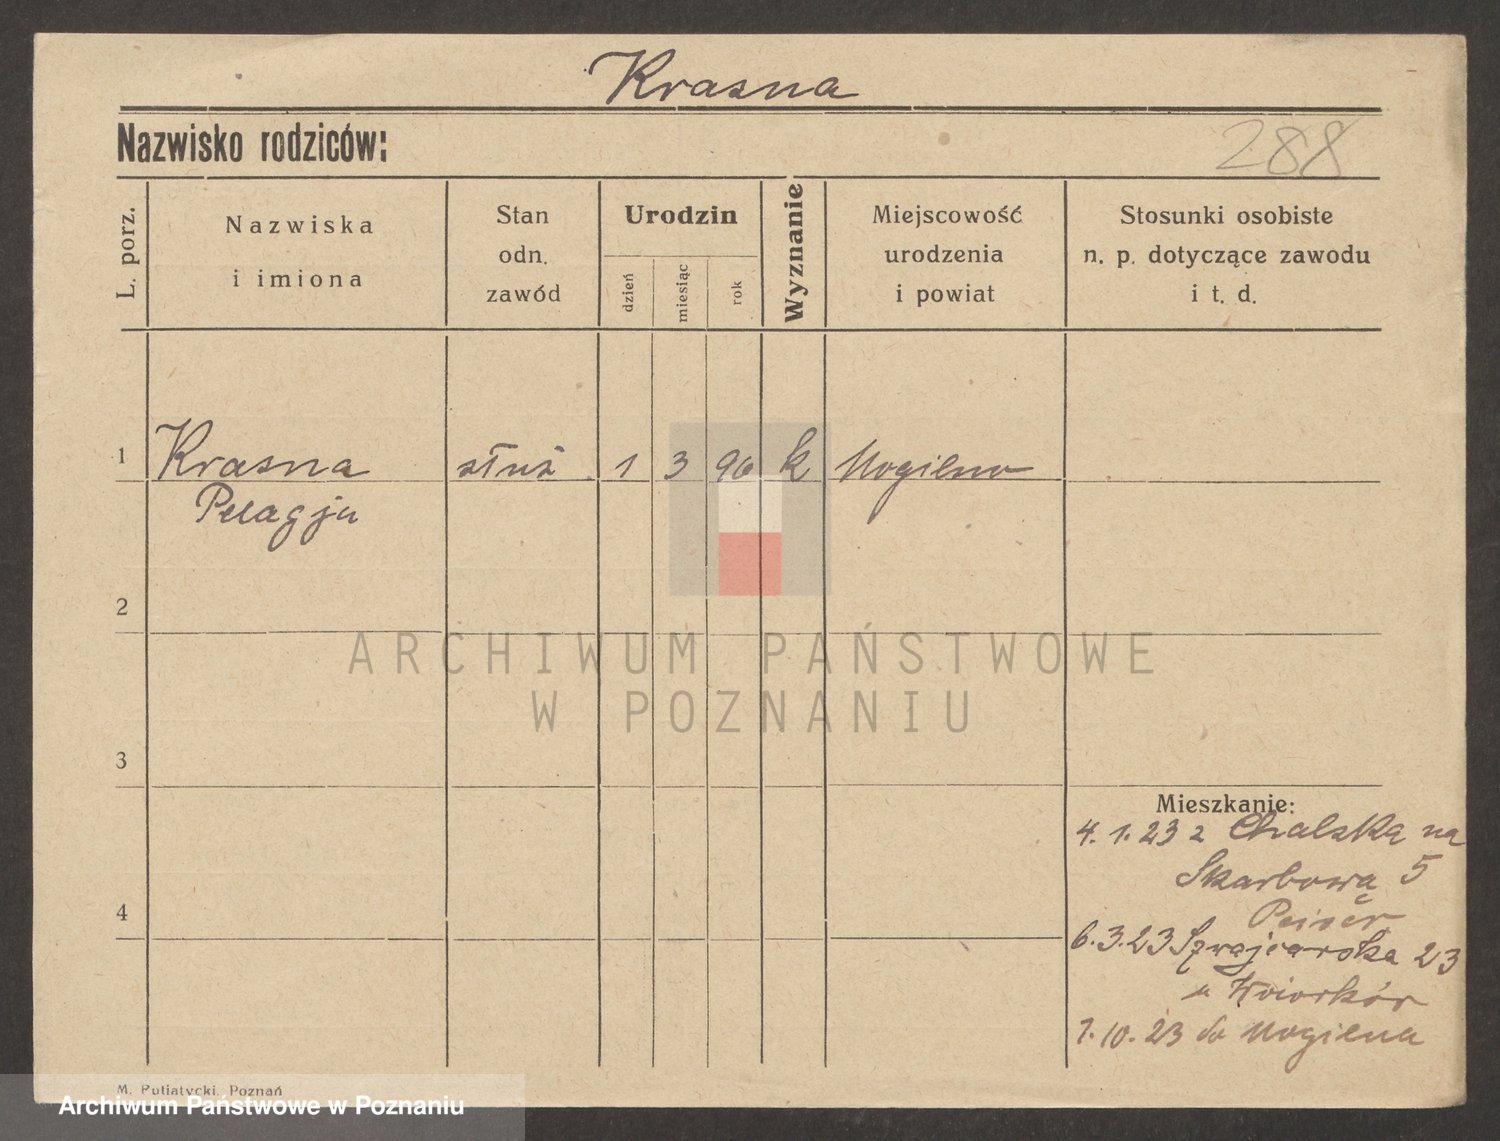 Krasna
Nazwisko rodziców:
288
L. porz.
Nazwiska
i imiona
Stan
odn.
zawód
Urodzin
dzień
miesiąc
rok
Wyznanie
Miejscowość
urodzenia
i powiat
Stosunki osobiste
n. p. dotyczące zawodu
i t. d.
1 Krasna służ 1 3 96 k Mogilno
Pelagja
2
3
4
ARCHIWUM PAŃSTWOWE
W POZNANIU
Mieszkanie:
4. 1. 23 z na
Skarbową 5
6. 3. 23 Szwajcarska 23
u
1. 10. 23 do Mogilna
M. Putiatycki, Poznań
Archiwum Państwowe w Poznaniu